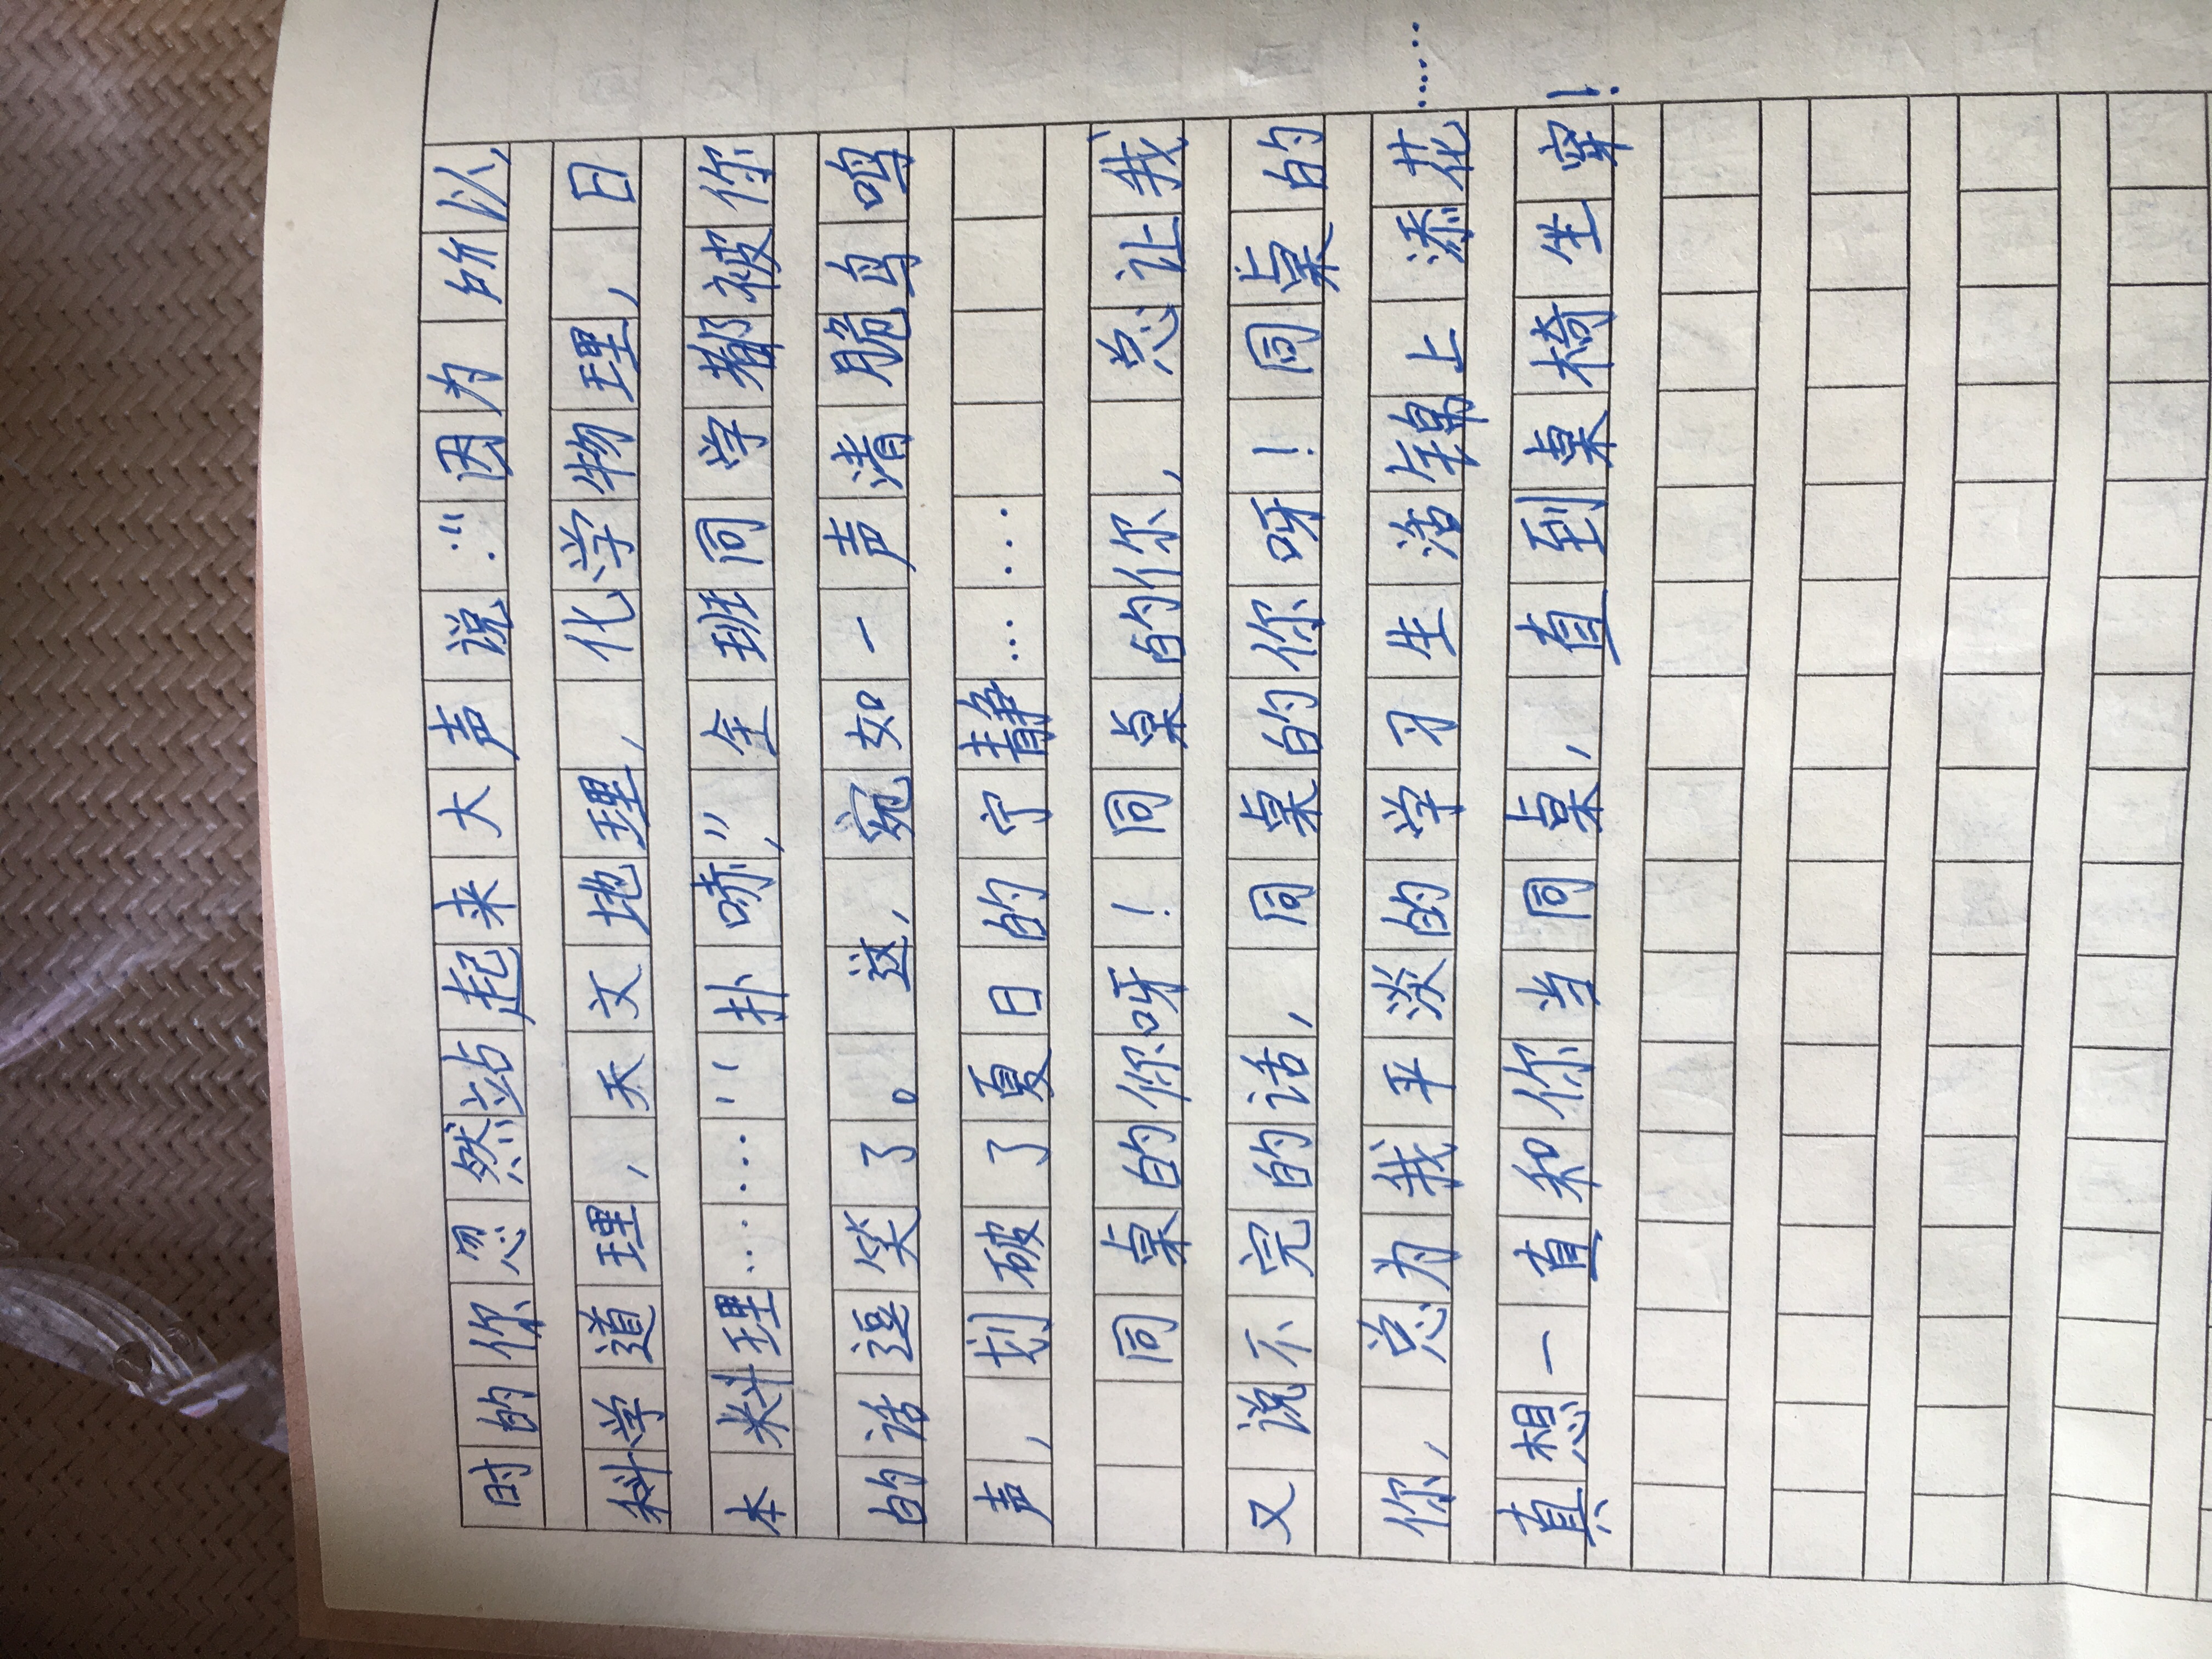 时的你忽然站起来大声说：“因为所以，
科学道理，天文地理，化学物理，日
本料理……”“扑哧”，全班同学都被你
的话逗笑了。这，宛如一声清脆鸟鸣
声，划破了夏日的宁静……
同桌的你呀！同桌的你，总让我
又说不完的话，同桌的你呀！同桌的
你，总为我平淡的学习生活锦上添花……
真想一直和你当同桌，直到桌椅坐穿！